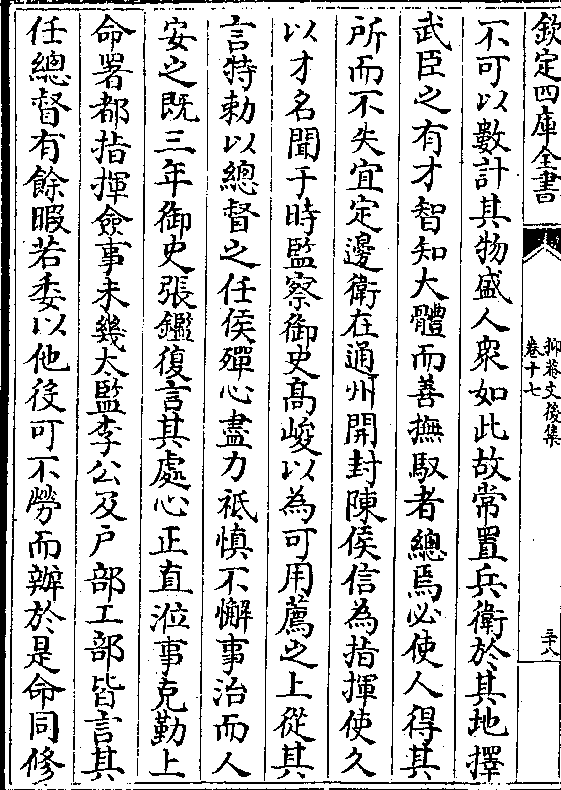 欽定四庫全書
抑菴文後集
卷十七
三十八
不可以數計其物盛人衆如此故常置兵衛於其地擇
武臣之有才智知大體而善撫馭者總焉必使人得其
所而不失宜定邊衛在通州開封陳侯信為指揮使久
以才名聞于時監察御史髙峻以為可用薦之上從其
言特勅以總督之任侯殫心盡力祗慎不懈事治而人
安之既三年御史張鑑復言其處心正直涖事克勤上
命署都指揮僉事未幾太監李公及戸部工部皆言其
任總督有餘暇若委以他役可不勞而辦於是命同修